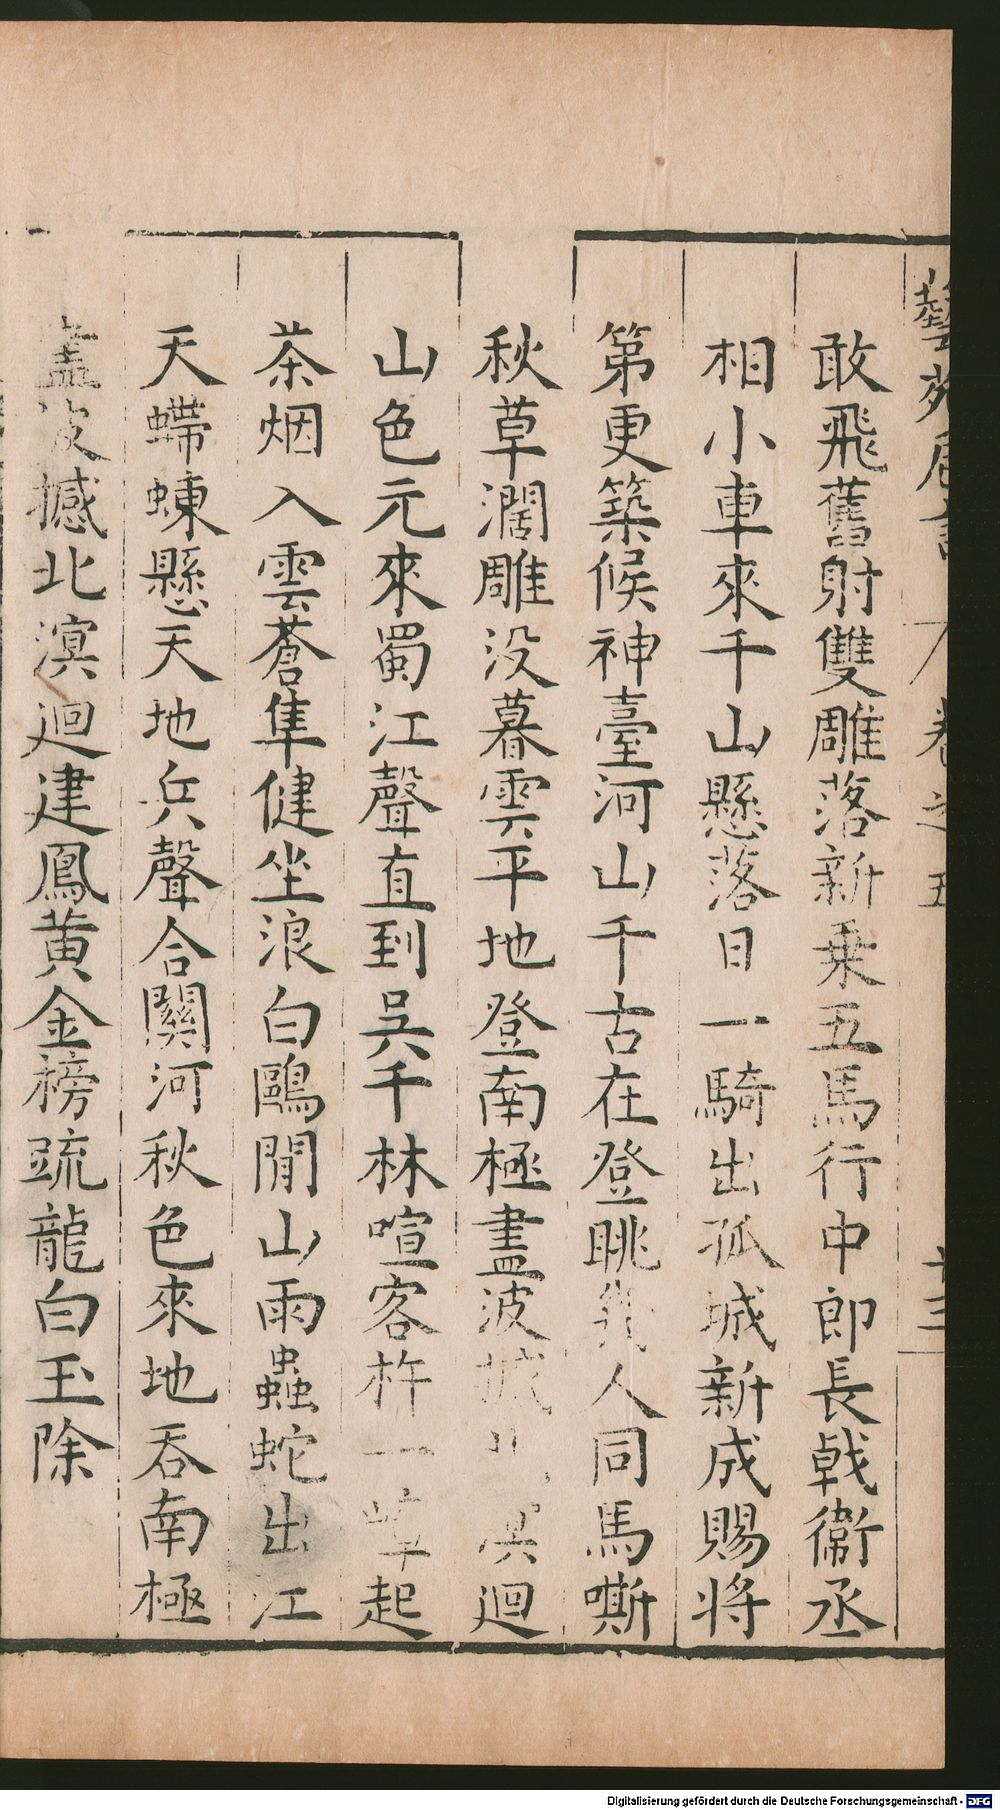 藝苑卮言 卷之五 十三
敢飛舊射雙雕落新乗五馬行中郎長戟衛丞
相小車來千山懸落日一騎出孤城新成賜將
第更築候神臺河山千古在登眺幾人同馬嘶
秋草濶雕没暮雲平地登南極盡波撼北溟迴
山色元來蜀江聲直到吳千林喧客杵一起
茶烟入雲蒼隼健坐浪白鷗閒山雨蟲蛇出江
天蝃蝀懸天地兵聲合關河秋色來地吞南極
盡波撼北溟迴建鳳黄金榜疏龍白玉除
Digitalisierung gefördert durch die Deutsche Forschungsgemeinschaft - DFG